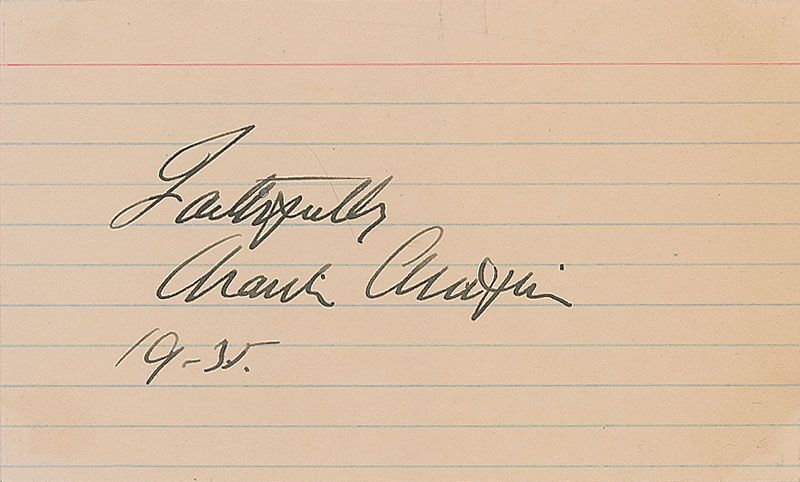 Faithfully
Charlie Chaplin
19-35.